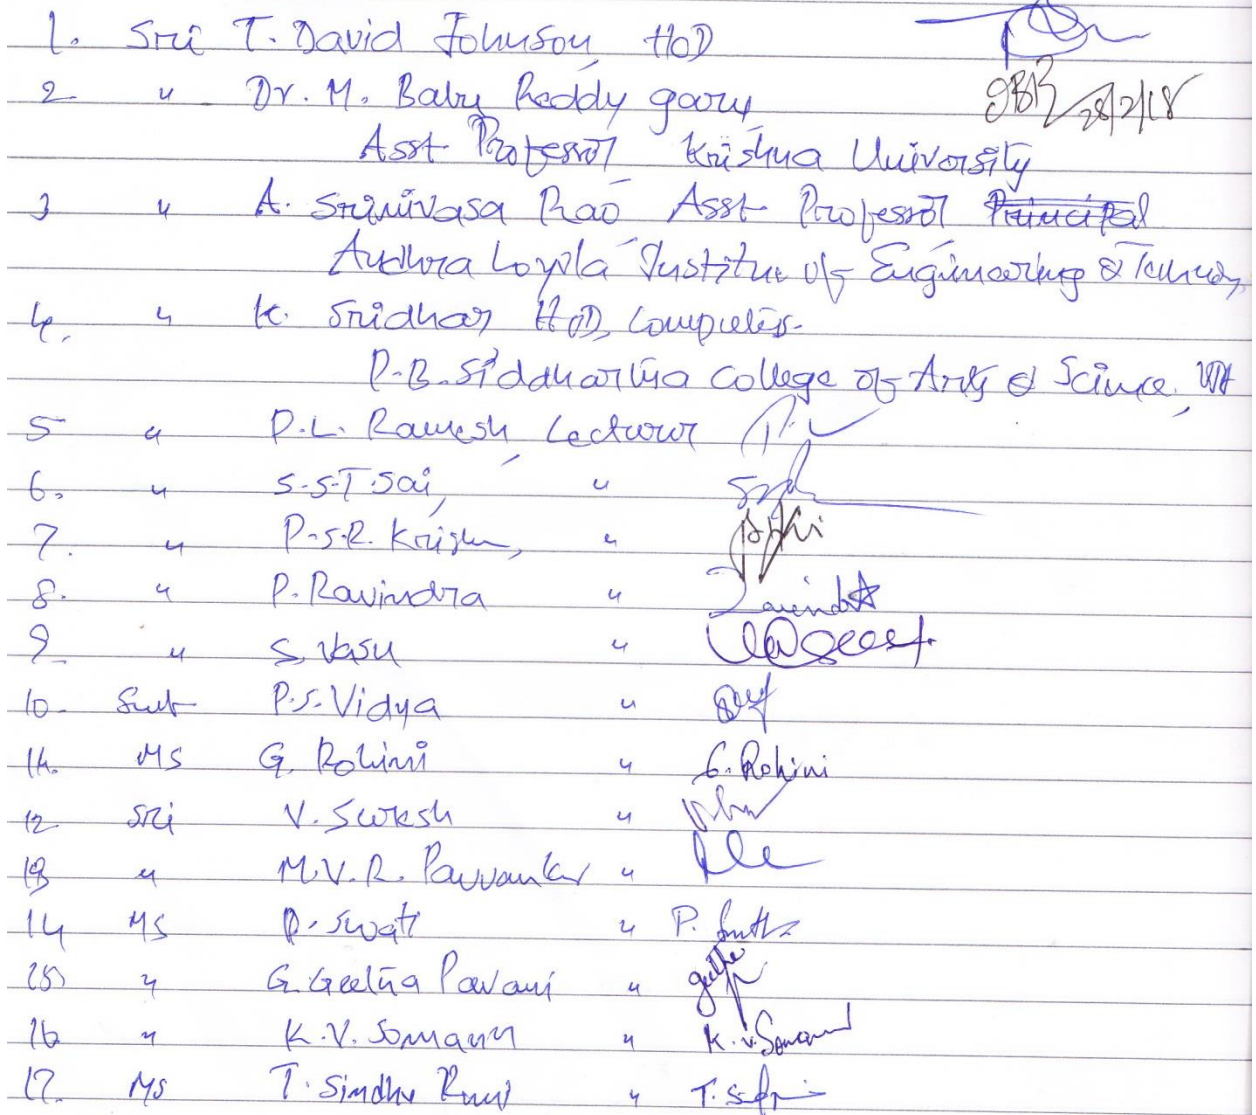 1. Sri T. David Johnson, HOD
2 " Dr. M. Baby Reddy garu,
Asst Professor Krishna University
3 " A. Srinivasa Rao Asst Professor Principal
Andhra Loyola Institue of Engineering &
4. " K. Sridhar HOD, Computers.
P.B. Siddhartha College of Arts & Science,
5 " P.L. Ramesh, Lecturer
6. " S.S.T. Sai, "
7. " P.S.R. Krishn, "
8. " P. Ravindra "
9 " S. Vasu "
10 - Smt P.S. Vidya "
11. MS G. Rohini " G. Rohini
12 Sri V. Suresh "
13 " M.V.R. "
14 MS P. Swati " P.
15) " G. Geetha Pavani "
16 " K.V. " K.V.
17. MS T. Sindhu " T.
28/2/18